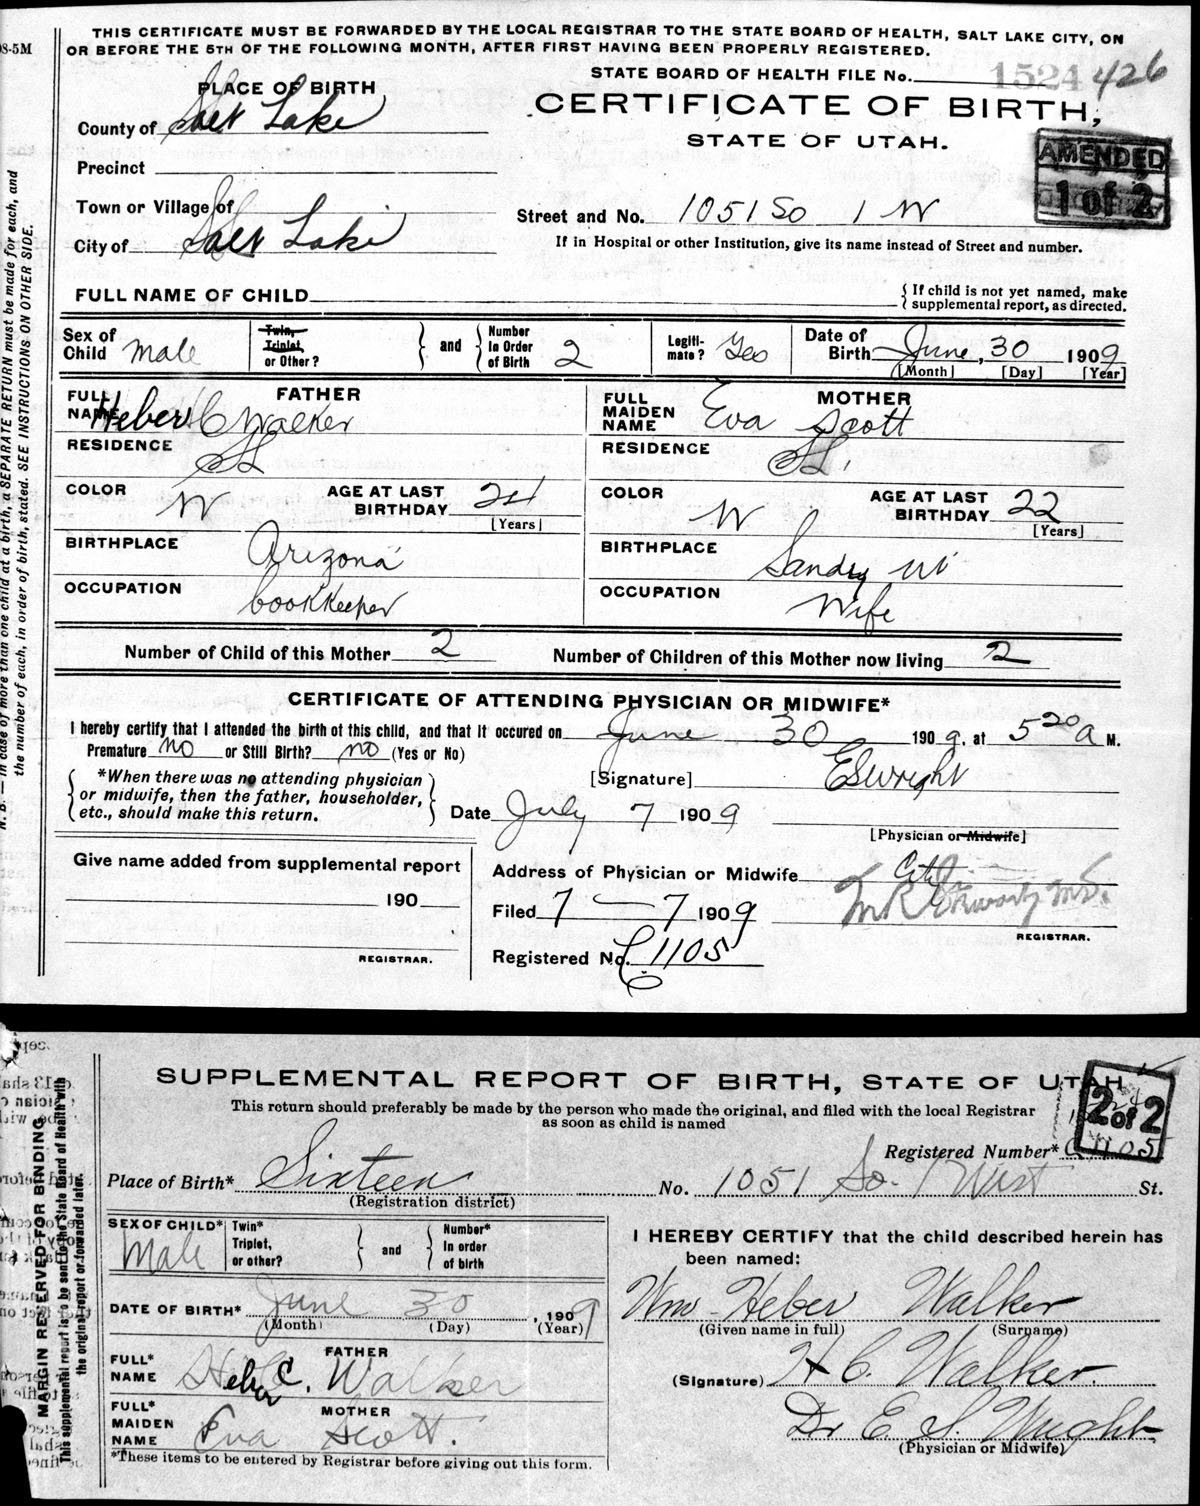 08-5M
THIS CERTIFICATE MUST BE FORWARDED BY THE LOCAL REGISTRAR TO THE STATE BOARD OF HEALTH, SALT LAKE CITY, ON
OR BEFORE THE 5TH OF THE FOLLOWING MONTH, AFTER FIRST HAVING BEEN PROPERLY REGISTERED.
STATE BOARD OF HEALTH FILE No. 1524 426
PLACE OF BIRTH
CERTIFICATE OF BIRTH,
County of Salt Lake
STATE OF UTAH.
AMENDED
1 of 2
Precinct
Town or Village of
Street and No. 1051 So 1 W
City of Salt Lake
If in Hospital or other Institution, give its name instead of Street and number.
FULL NAME OF CHILD
{ If child is not yet named, make
supplemental report, as directed.
Sex of Child Male
Twin, Triplet, or Other?
and
Number In Order of Birth 2
Legiti-mate? Yes
Date of Birth June, 30 1909
[Month] [Day] [Year]
FATHER
FULL NAME Heber C Walker
MOTHER
FULL MAIDEN NAME Eva Scott
RESIDENCE SL
RESIDENCE SL,
COLOR W
AGE AT LAST BIRTHDAY 24
[Years]
COLOR W
AGE AT LAST BIRTHDAY 22
[Years]
BIRTHPLACE Arizona
BIRTHPLACE Sandy
OCCUPATION bookkeeper
OCCUPATION Wife
Number of Child of this Mother 2
Number of Children of this Mother now living 2
CERTIFICATE OF ATTENDING PHYSICIAN OR MIDWIFE*
I hereby certify that I attended the birth of this child, and that it occured on June 30 1909, at 5 20 a M.
Premature no or Still Birth? no (Yes or No)
*When there was no attending physician
or midwife, then the father, householder,
etc., should make this return.
[Signature] E S Wright
Date July 7 1909
[Physician or Midwife]
Give name added from supplemental report
190
REGISTRAR.
Address of Physician or Midwife City
Filed 7 — 7 1909
REGISTRAR.
Registered No. C 1105
N. B. — In case of more than one child at a birth, a SEPARATE RETURN must be made for each, and
the number of each, in order of birth, stated. SEE INSTRUCTIONS ON OTHER SIDE.
SUPPLEMENTAL REPORT OF BIRTH, STATE OF UTAH
2 of 2
This return should preferably be made by the person who made the original, and filed with the local Registrar
as soon as child is named
Registered Number* C 1105
Place of Birth* Sixteen No. 1051 So. 1 West St.
(Registration district)
SEX OF CHILD* Male
Twin* Triplet, or other?
and
Number* In order of birth
I HEREBY CERTIFY that the child described herein has
been named:
DATE OF BIRTH* June 30, 1909
(Month) (Day) (Year)
Wm Heber Walker
(Given name in full) (Surname)
FATHER
FULL* NAME Heber C. Walker
(Signature) H C. Walker.
MOTHER
FULL* MAIDEN NAME Eva Scott.
Dr E. S. Wright
(Physician or Midwife)
*These items to be entered by Registrar before giving out this form.
MARGIN RESERVED FOR BINDING
This supplemental report is to be sent to the State Board of Health with
the original report or forwarded later.